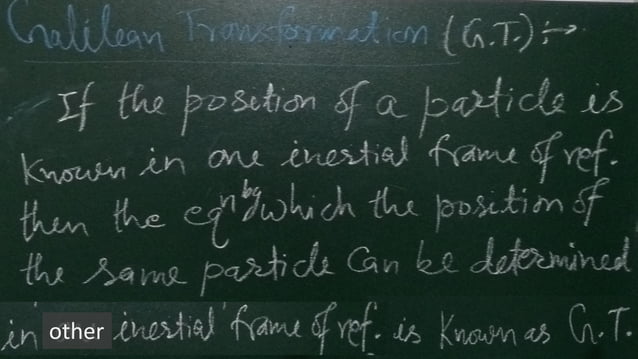 Galilean Transformation (G.T.):→
If the position of a particle is
known in one inertial frame of ref.
then the eqn by which the position of
the same particle can be determined
in other inertial frame of ref. is known as G.T.